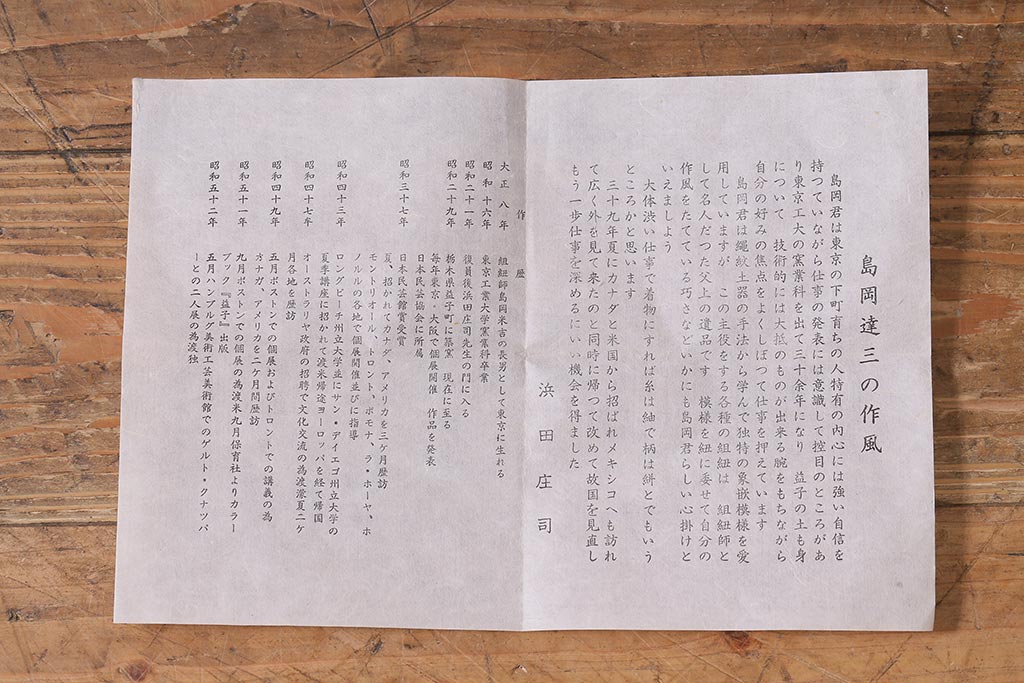 島岡達三の作風
島岡君は東京の下町育ちの人特有の内心には強い自信を
持つていながら仕事の発表には意識して控目のところがあ
り東京工大の窯業科を出て三十余年になり 益子の土も身
について 技術的には大抵のものが出来る腕をもちながら
自分の好みの焦点をよくしぼつて仕事を押えています
島岡君は縄紋土器の手法から学んで独特の象嵌模様を愛
用していますが、この主役をする各種の組紐は 組紐師と
して名人だつた父上の遺品です 模様を紐に委せて自分の
作風をたてている巧さなどいかにも島岡君らしい心掛けと
いえましよう
大体渋い仕事で着物にすれば糸は紬で柄は絣とでもいう
ところかと思います
三十九年夏にカナダと米国から招ばれメキシコへも訪れ
て広く外を見て来たのと同時に帰つて改めて故国を見直し
もう一歩仕事を深めるにいい機会を得ました
浜田庄司
作歴
大正八年 組紐師島岡米吉の長男として東京に生れる
昭和十六年 東京工業大学窯業科卒業
昭和二十一年 復員後浜田庄司先生の門に入る
昭和二十九年 栃木県益子町に築窯 現在に至る
毎年東京・大阪で個展開催 作品を発表
日本民芸協会に所属
昭和三十七年 日本民芸館賞受賞
夏、招かれてカナダ、アメリカを三ケ月歴訪
モントリオール、トロント、ポモナ、ラ・ホーヤ、ホ
ノルルの各地で個展開催並びに指導
昭和四十三年 ロングビーチ州立大学並にサン・デイエゴ州立大学の
夏季講座に招かれて渡米帰途ヨーロッパを経て帰国
昭和四十七年 オーストラリヤ政府の招聘で文化交流の為渡濠夏二ケ
月各地を歴訪
昭和四十九年 五月ボストンでの個展およびトロントでの講義の為
カナガ、アメリカを二ケ月間歴訪
昭和五十一年 九月ボストンでの個展の為渡米九月保育社よりカラー
ブック『益子』出版
昭和五十二年 五月ハンブルグ美術工芸美術館でのゲルト・クナッパ
ーとの二人展の為渡独